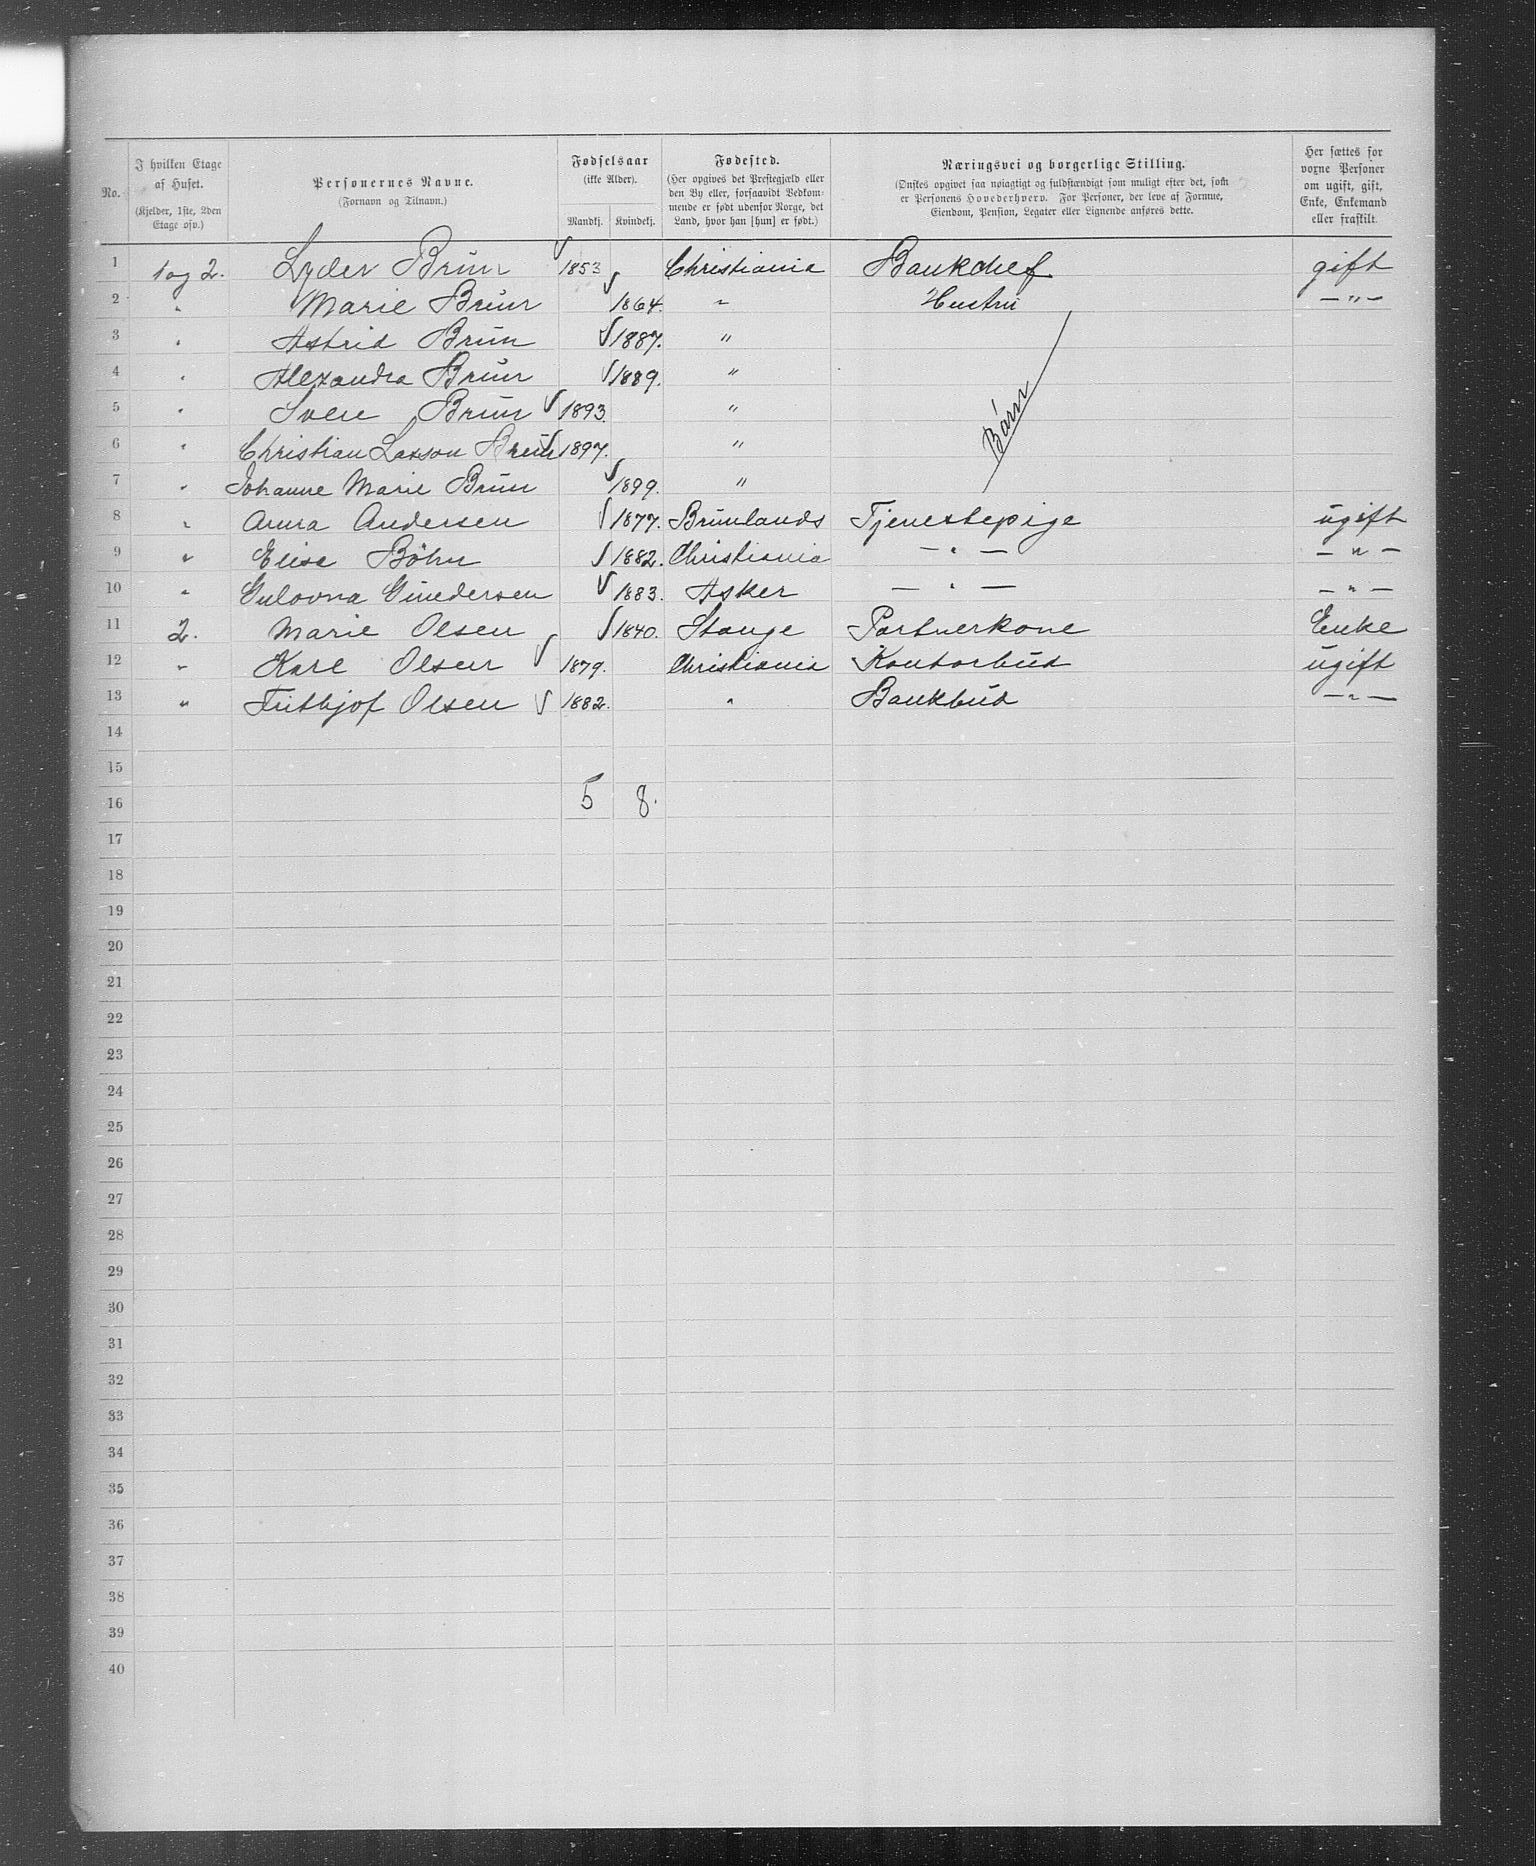 No. I hvilken Etage af Huset. (Kjelder, 1ste, 2den Etage osv.) Personernes Navne. (Fornavn og Tilnavn.) Fødselsaar (ikke Alder). Mandkj. Kvindekj. Fødested. (Her opgives det Prestegjæld eller den By eller, forsaavidt Vedkommende er født udenfor Norge, det Land, hvor han [hun] er født.) Næringsvei og borgerlige Stilling. (Ønskes opgivet saa nøiagtigt og fuldstændigt som muligt efter det, som er Personens Hovederhverv. For Personer, der leve af Formue, Eiendom, Pension, Legater eller Lignende anføres dette. Her sættes for voxne Personer om ugift, gift, Enke, Enkemand eller fraskilt.
1 1 og 2. Lyder Brun 1853 Christiania Bankchef gift
2 " Marie Brun 1864. " Hustru — " —
3 " Astrid Brun 1887. "
4 " Alexandra Brun 1889. "
5 " Sven Brun 1893. " Børn
6 " Christian Laxson Brun 1897. "
7 " Johanne Marie Brun 1899. "
8 " Anna Andersen 1877. Brunlands Tjenestepige ugift
9 " Elise Böhn 1882. Christiania — " — — " —
10 " Gulovna Gundersen 1883. Asker — " — — " —
11 2. Marie Olsen 1840. Stange Portnerkone Enke
12 " Karl Olsen 1879. Christiania Kontorbud ugift
13 " Frithjof Olsen 1882. " Bankbud — " —
14
15
16 5 8.
17
18
19
20
21
22
23
24
25
26
27
28
29
30
31
32
33
34
35
36
37
38
39
40